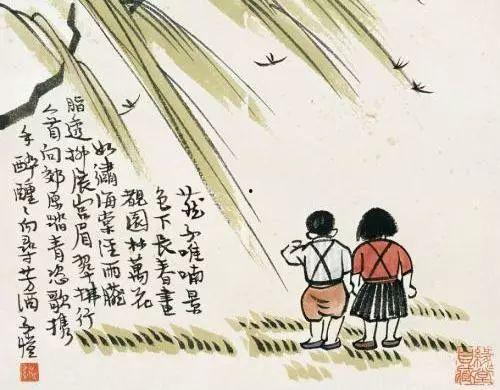 燕子呢喃景
色乍長春晝
覩園林萬花
如繡海棠經雨臙
脂透柳展宮眉翠拂行
人首向郊原踏青恣歌携
手醉醺〻尚尋芳酒 子愷